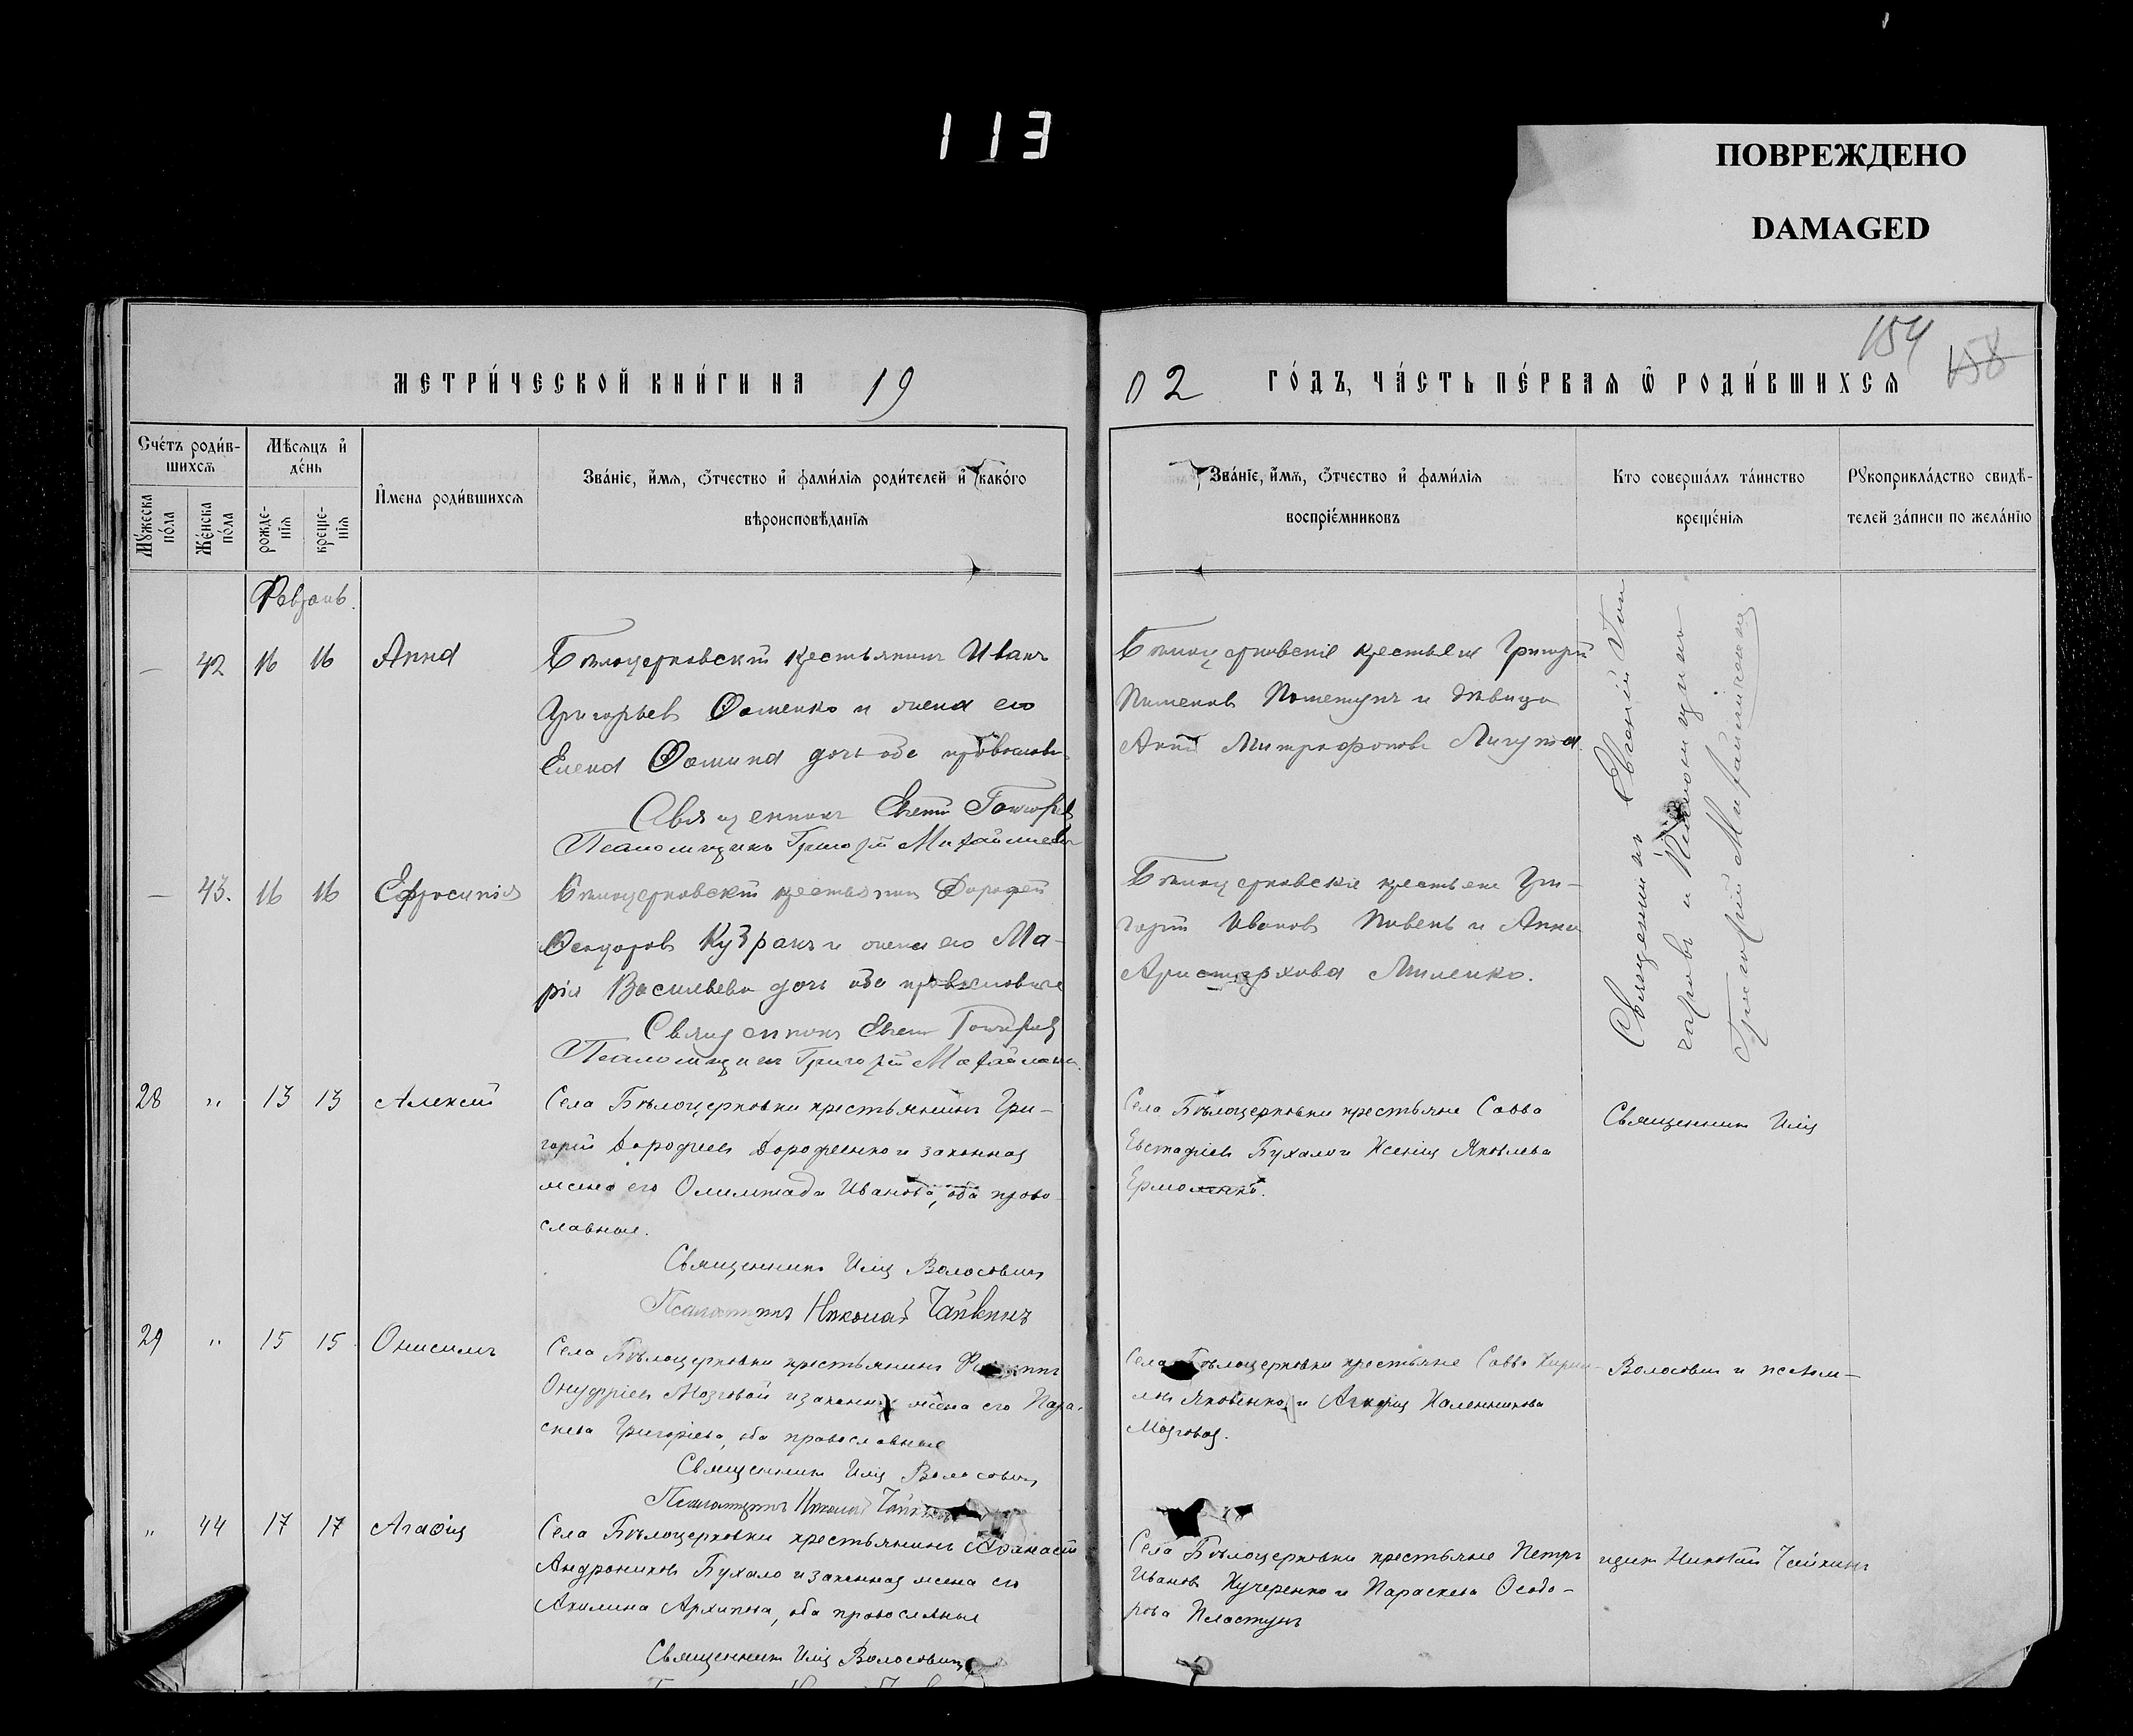 113
ПОВРЕЖДЕНО
DAMAGED
154
158
МЕТРИ́ЧЕСКОЙ КНИ́ГИ НА 19
02 ГО́ДЪ, ЧА́СТЬ ПЕ́РВАѦ Ѿ РОДИ́ВШИХСѦ
Сче́тъ роди́в-
шихсѧ
Мѣ́сѧцъ и҆
де́нь
Мꙋ́жеска
по́ла
Же́нска
по́ла
рожде-
нїѧ
креще-
нїѧ
И҆мена роди́вшихсѧ
Зва́нїе, и҆́мѧ, ѻ҆́тчество и҆ фами́лїѧ роди́телей и҆ како́го
вѣроисповѣ́данїѧ
Зва́нїе, и҆́мѧ, ѻ҆́тчество и҆ фами́лїѧ
воспрїе́мниковъ
Кто соверша́лъ та́инство
креще́нїѧ
Рꙋкоприкла́дство свидѣ́-
телей за́писи по жела́нїю
Февраль.
— 42 16 16 Анна
Бѣлоцерковскій крестьянинъ Иванъ
Григорьевъ Ѳоменко и жена его
Елена Ѳомина дочь оба православн
Священникъ Евгеній
Псаломщикъ Григорій
Бѣлоцерковскіе крестьяне Григорій
Пименовъ и дѣвица
Анна Митрофанова
Священникъ Евгеній Гон
чаровъ и Псаломщикъ
Григорій
— 43. 16 16 Ефросинія
Бѣлоцерковскій крестьянинъ Дорофей
и жена его Ма-
рія Васильева дочь оба православные
Священникъ Евгеній
Псаломщикъ Григорій
Бѣлоцерковскіе крестьяне Гри-
горій Ивановъ Пивень и Анна
Аристархова Миленко.
28 " 13 13 Алексій
Села Бѣлоцерковки крестьянинъ Гри-
горій Дорофеевъ Дорофеенко и законная
жена его Олимпіада Иванова, оба право-
славные.
Священникъ Илія Волосовичъ
Псаломщикъ Николай Чайкинъ
Села Бѣлоцерковки крестьяне Савва
Евстафіевъ Бухало и Ксенія Яковлева
Ермоленко.
Священникъ Илія
29 " 15 15 Онисимъ
Села Бѣлоцерковки крестьянинъ
Онуфріевъ Мозговой и законная жена его Пара-
скева Григоріева, оба православные
Священникъ Илія Волосовичъ
Псаломщикъ Николай Чайкинъ
Села Бѣлоцерковки крестьяне Савва Кирил-
ловъ Яковенко и Агафія Калинникова
Мозговая.
Волосовичъ и псалом-
" 44 17 17 Агафія
Села Бѣлоцерковки крестьянинъ Аѳанасій
Андрониковъ Бухало и законная жена его
Акилина Архипова, оба православные
Священникъ Илія Волосовичъ
Села Бѣлоцерковки крестьяне Петръ
Ивановъ Кучеренко и Параскева Ѳеодо-
рова Пластунъ
щикъ Николай Чайкинъ